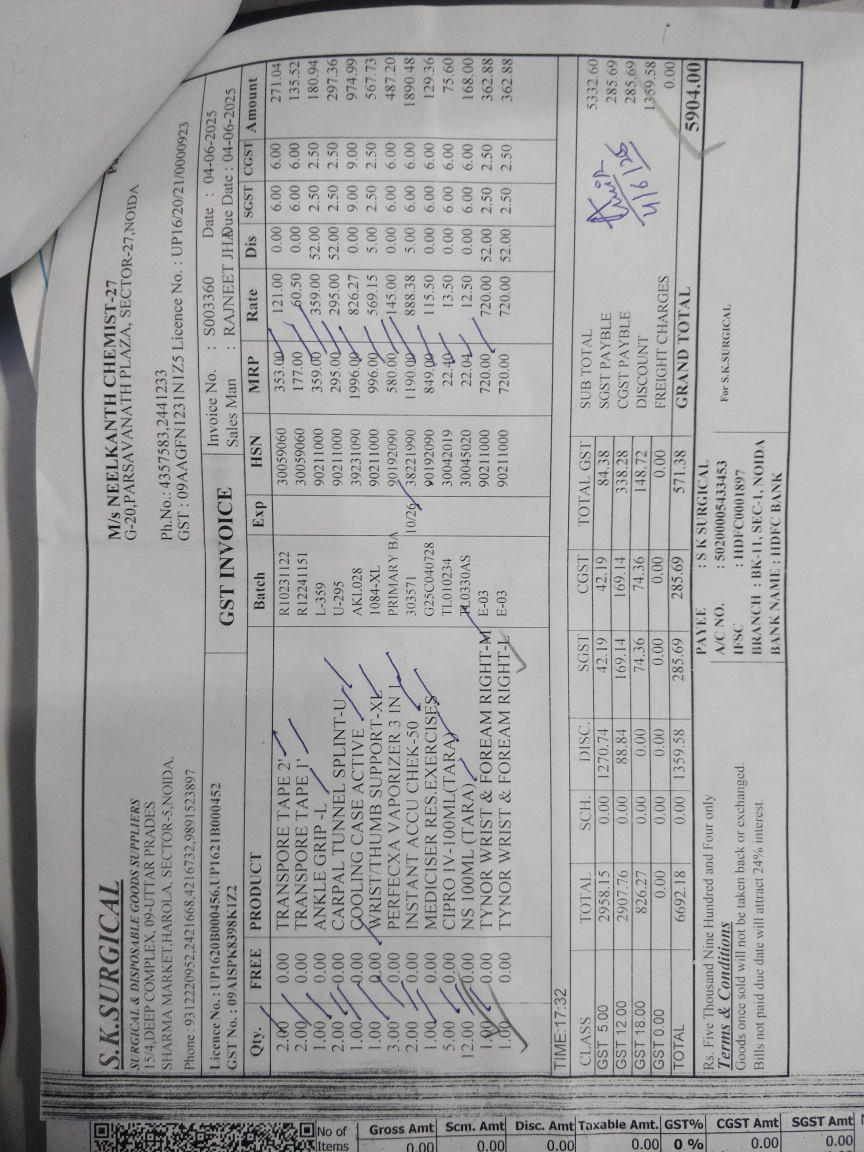 S.K.SURGICAL
SURGICAL & DISPOSABLE GOODS SUPPLIERS
15/4,DEEP COMPLEX, 09-UTTAR PRADES
SHARMA MARKET,HAROLA, SECTOR-5,NOIDA.
Phone: 9312220952,2421668,4216732,9891523897
M/s NEELKANTH CHEMIST-27
G-20,PARSAVANATH PLAZA, SECTOR-27,NOIDA
Ph.No.: 4357583,2441233
GST : 09AAGFN1231N1Z5 Licence No. : UP16/20/21/0000923
Licence No. : UP1620B000456,UP1621B000452
GST No. : 09AISPK8398K1Z2
GST INVOICE
Invoice No. : S003360 Date : 04-06-2025
Sales Man : RAJNEET JHA Due Date : 04-06-2025
Qty. FREE PRODUCT Batch Exp HSN MRP Rate Dis SGST CGST Amount
2.00 0.00 TRANSPORE TAPE 2' R10231122 30059060 353.00 121.00 0.00 6.00 6.00 271.04
2.00 0.00 TRANSPORE TAPE 1' R12241151 30059060 177.00 60.50 0.00 6.00 6.00 135.52
1.00 0.00 ANKLE GRIP -L L-359 90211000 359.00 359.00 52.00 2.50 2.50 180.94
2.00 0.00 CARPAL TUNNEL SPLINT-U U-295 90211000 295.00 295.00 52.00 2.50 2.50 297.36
1.00 0.00 COOLING CASE ACTIVE AKL028 39231090 1996.00 826.27 0.00 9.00 9.00 974.99
1.00 0.00 WRIST/THUMB SUPPORT-XL 1084-XL 90211000 996.00 569.15 5.00 2.50 2.50 567.73
3.00 0.00 PERFECXA VAPORIZER 3 IN 1 PRIMARY BA 90192090 580.00 145.00 0.00 6.00 6.00 487.20
2.00 0.00 INSTANT ACCU CHEK-50 303571 10/26 38221990 1190.00 888.38 5.00 6.00 6.00 1890.48
1.00 0.00 MEDICISER RES.EXERCISES G25C040728 90192090 849.00 115.50 0.00 6.00 6.00 129.36
5.00 0.00 CIPRO IV-100ML(TARA) TL010234 30042019 22.40 13.50 0.00 6.00 6.00 75.60
12.00 0.00 NS 100ML (TARA) TL0330AS 30045020 22.04 12.50 0.00 6.00 6.00 168.00
1.00 0.00 TYNOR WRIST & FOREAM RIGHT-M E-03 90211000 720.00 720.00 52.00 2.50 2.50 362.88
1.00 0.00 TYNOR WRIST & FOREAM RIGHT-L E-03 90211000 720.00 720.00 52.00 2.50 2.50 362.88
TIME:17:32
CLASS TOTAL SCH. DISC. SGST CGST TOTAL GST
GST 5.00 2958.15 0.00 1270.74 42.19 42.19 84.38
GST 12.00 2907.76 0.00 88.84 169.14 169.14 338.28
GST 18.00 826.27 0.00 0.00 74.36 74.36 148.72
GST 0.00 0.00 0.00 0.00 0.00 0.00 0.00
TOTAL 6692.18 0.00 1359.58 285.69 285.69 571.38
SUB TOTAL 5332.60
SGST PAYBLE 285.69
CGST PAYBLE 285.69
DISCOUNT 1359.58
FREIGHT CHARGES 0.00
GRAND TOTAL 5904.00
4/6/25
Rs. Five Thousand Nine Hundred and Four only
Terms & Conditions
Goods once sold will not be taken back or exchanged.
Bills not paid due date will attract 24% interest.
PAYEE : S K SURGICAL
A/C NO. : 50200005433453
IFSC : HDFC0001897
BRANCH : BK-11, SEC-1, NOIDA
BANK NAME : HDFC BANK
For S.K.SURGICAL
No of Items Gross Amt Scm. Amt Disc. Amt Taxable Amt. GST% CGST Amt SGST Amt
0.00 0.00 0.00 0.00 0 % 0.00 0.00